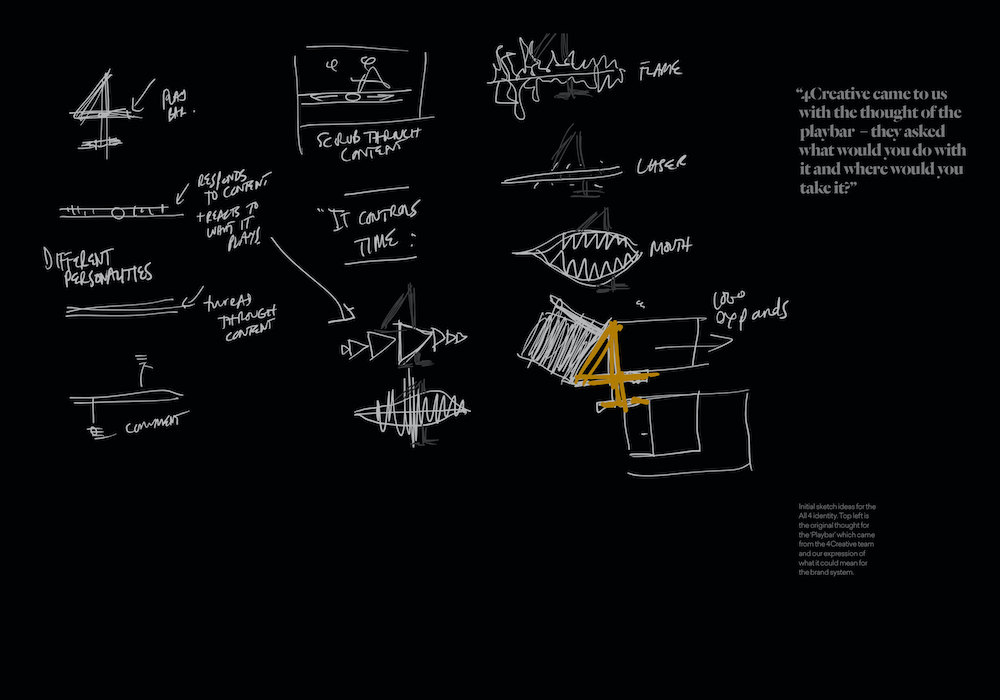 PLAY
BAR.
RESPONDS
TO CONTENT
+ REACTS TO
WHAT IT
PLAYS
DIFFERENT
PERSONALITIES
THREAD
THROUGH
CONTENT
COMMENT
SCRUB THROUGH
CONTENT
"IT CONTROLS
TIME :
FLAME
LASER
MOUTH
LOGO
EXPANDS
4
“4Creative came to us
with the thought of the
playbar – they asked
what would you do with
it and where would you
take it?”
Initial sketch ideas for the
All 4 identity. Top left is
the original thought for
the ‘Playbar’ which came
from the 4Creative team
and our expression of
what it could mean for
the brand system.